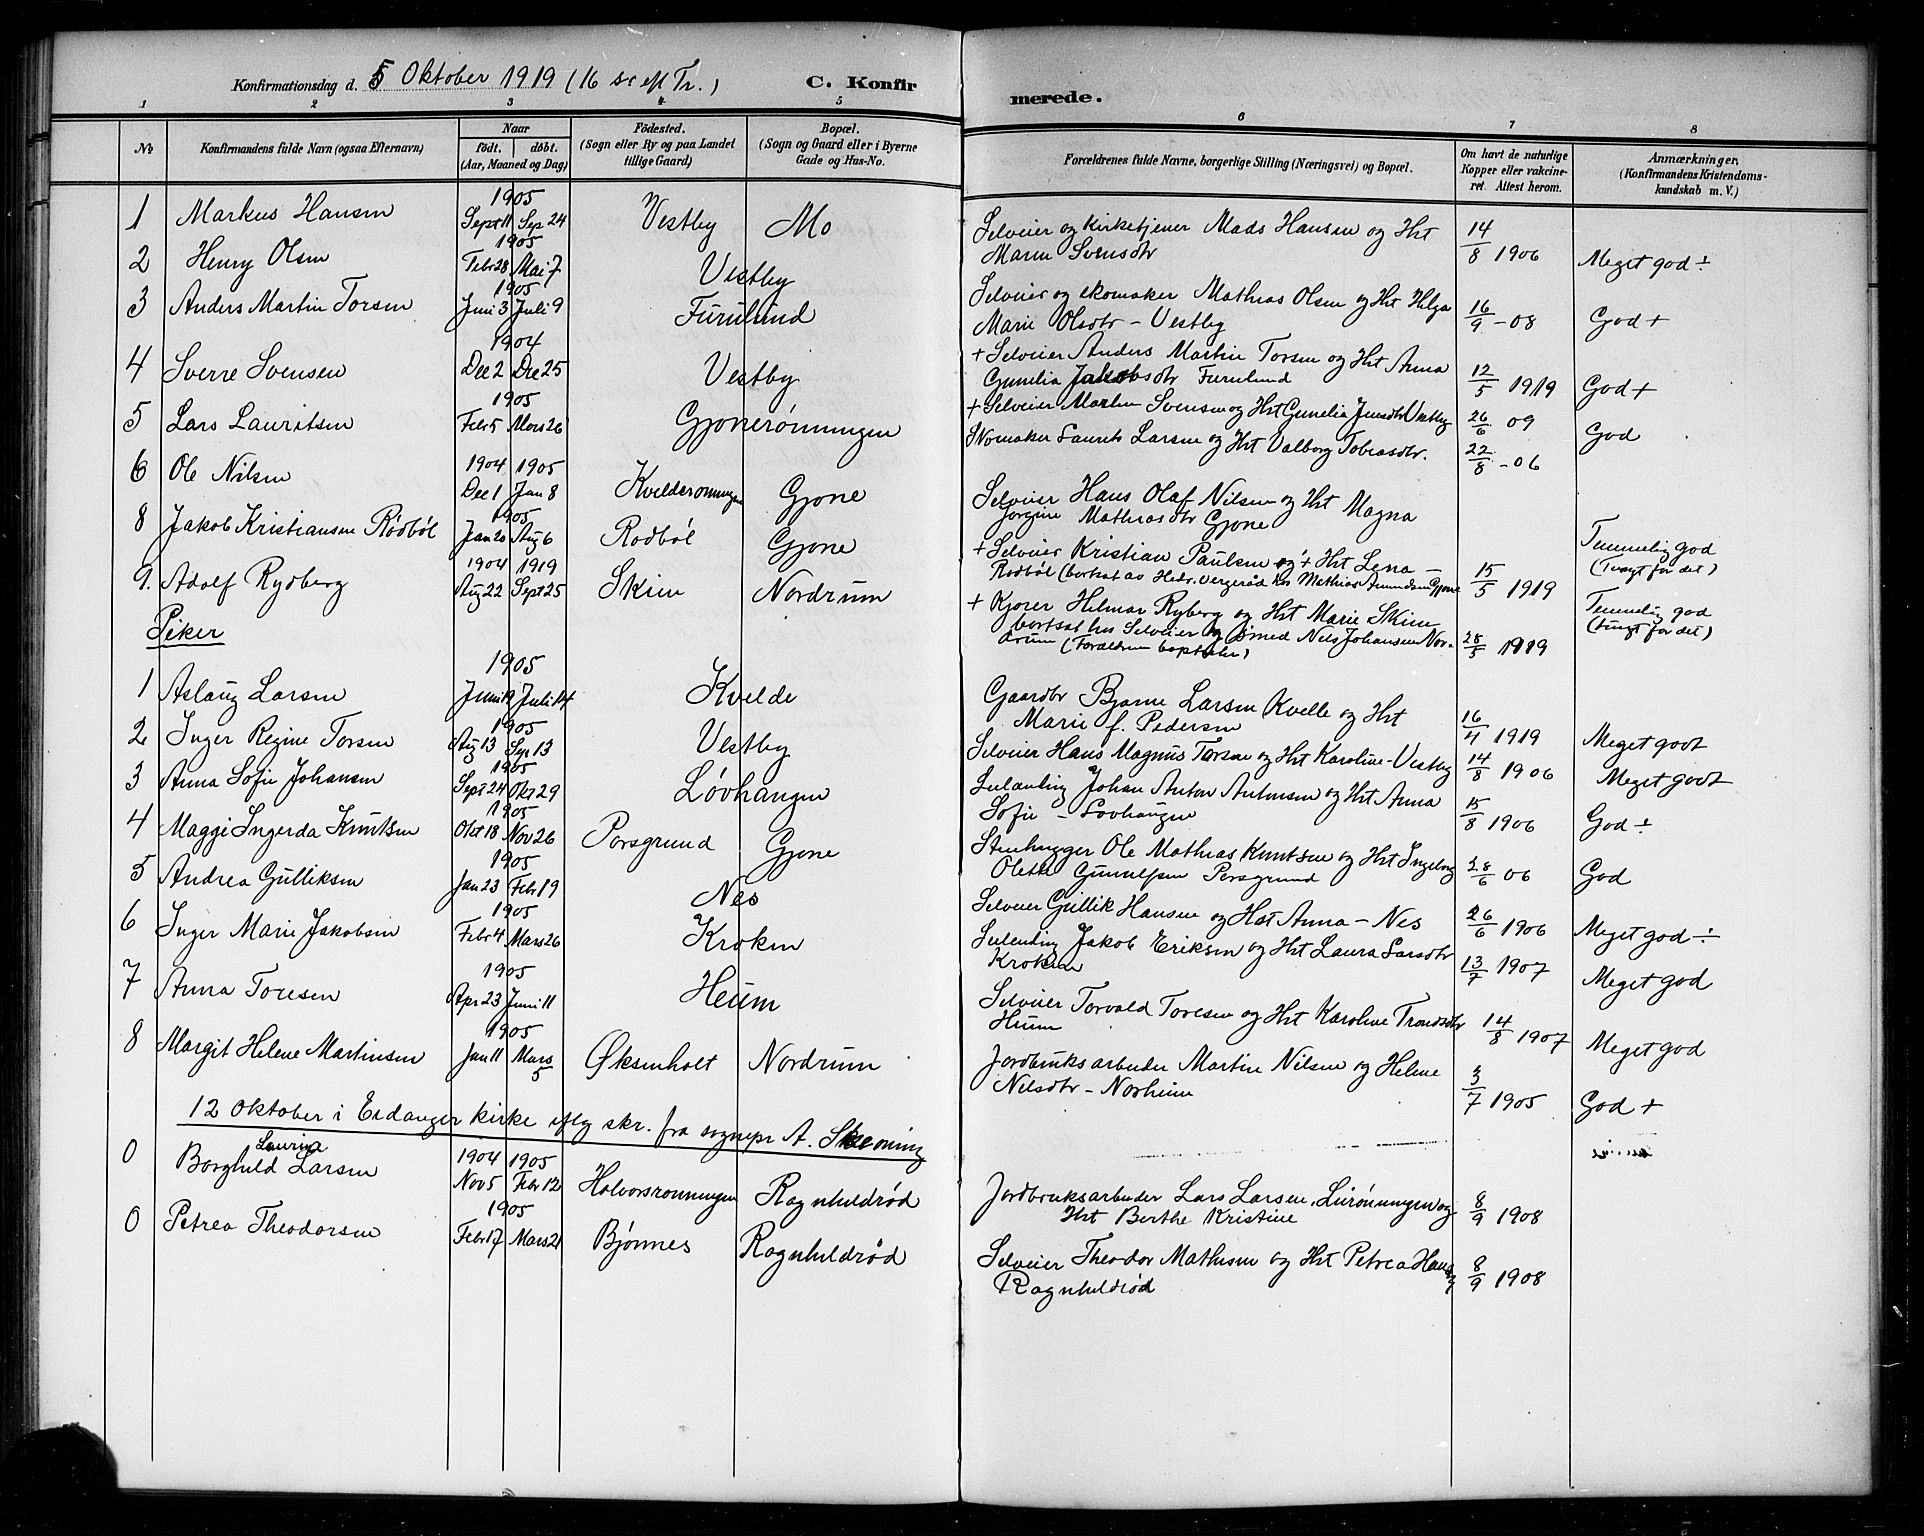 Konfirmationsdag d. 5 Oktober 1919 (16 s. eft Tr.)
C. Konfirmerede.
1 2 3 4 5 6 7 8
No
Konfirmandens fulde Navn (ogsaa Efternavn)
Naar
födt. döbt.
(Aar, Maaned og Dag)
Födested.
(Sogn eller By og paa Landet
tillige Gaard)
Bopæl.
(Sogn og Gaard eller i Byerne
Gade og Hus-No.
Forældrenes fulde Navne, borgerlige Stilling (Næringsvei) og Bopæl.
Om havt de naturlige
Kopper eller vakcine-
ret. Attest herom.
Anmærkninger.
(Konfirmandens Kristendoms-
kundskab m. V.)
1 Markus Hansen 1905 Sept 11 Sep 24 Vestby Mo
Selveier og Kirketjener Mads Hansen og Hst
Maren Svensdtr 14/8 1906 Meget god ÷
2 Henry Olsen 1905 Febr 28 Mai 7 Vestby
Selveier og skomaker Mathias Olsen og Hst Helga
Marie Olsdtr – Vestby 16/9 – 08 God +
3 Anders Martin Torsen 1905 Juni 3 Juli 9 Furulund
+ Selveier Anders Martin Torsen og Hst Anna
Gunelia Jakobsdtr Furulund 12/5 1919 God +
4 Sverre Svensen 1904 Dec 2 Dec 25 Vestby
+ Selveier Marten Svensen og Hst Gunelia Jensdtr Vestby 26/6 09 God
5 Lars Lauritsen 1905 Febr 5 Mars 26 Gjonerønningen
Skomaker Laurits Larsen og Hst Valborg Tobiasdtr. 22/8 – 06
6 Ole Nilsen 1904 1905 Dec 1 Jan 8 Kvelderonningen Gjone
Selveier Hans Olaf Nilsen og Hst Magna
Jorgine Mathiasdtr Gjone
8 Jakob Kristiansen Rödböl 1905 Jan 20 Aug 6 Rodböl Gjone
+ Selveier Kristian Paulsen og + Hst Lena –
Rodböl (bortsat av Hedr. Vergeråd hos Mathias Amundsen Gjone 15/5 1919 Temmelig god
(Tungt for det)
9. Adolf Rydberg 1904 1919 Aug 22 Sept 25 Skien Nordrum
+ Kjorer Hilmar Ryberg og Hst Marie Skien
bortsat hos Selveier og smed Nils Johansen Nor-
drum (Forældrene baptister) 28/5 1919 Temmelig god
(tungt for det)
Piker
1 Aslaug Larsen 1905 Juni 19 Juli 14 Kvelde
Gaardbr Bjarne Larsen Kvelle og Hst
Marie f. Pedersen 16/4 1919 Meget godt
2 Inger Regine Torsen 1905 Aug 13 Sep 13 Vestby
Selveier Hans Magnus Torsen og Hst Karoline – Vestby 14/8 1906 Meget godt
3 Anna Sofie Johansen 1905 Sept 24 Okt 29 Løvhangen
Leilænding Johan Anton Antonsen og Hst Anna
Sofie – Lovhangen 15/8 1906 God ÷
4 Maggi Ingerda Knutsen 1905 Okt 18 Nov 26 Porsgrund Gjone
Stenhugger Ole Mathias Knutsen og Hst Ingeborg
Olette Gunulfsen Porsgrund 28/6 06 God
5 Andrea Gulliksen 1905 Jan 23 Febr 19 Nes
Selveier Gullik Hansen og Hst Anna – Nes 26/6 1906 Meget god ÷
6 Inger Marie Jakobsen 1905 Febr 4 Mars 26 Kroken
Leilending Jakob Eriksen og Hst Laura Larsdtr
Kroken 13/7 1907 Meget god
7 Anna Toresen 1905 Apr 23 Juni 11 Heum
Selveier Torvald Toresen og Hst Karoline Trondsdtr
Heum 14/8 1907 Meget god
8 Margit Helene Martinsen 1905 Jan 11 Mars 5 Øksenholt Nordrum
Jordbruksarbeider Martin Nilsen og Helene
Nilsdtr – Norheim 3/7 1905 God +
12 Oktober i Eidanger kirke iflg skr. fra sognepr A.
0 Borghild Laurina Larsen 1904 1905 Nov 5 Febr 12 Halvorsronningen Ragnhildrød
Jordbruksarbeider Lars Larsen, Lirönningen og
Hst Berthe Kristine 8/9 1908
0 Petrea Theodorsen 1905 Febr 17 Mars 21 Bjønnes Ragnhildrød
Selveier Theodor Mathisen og Hst Petrea
Ragnhildrød 8/9 1908